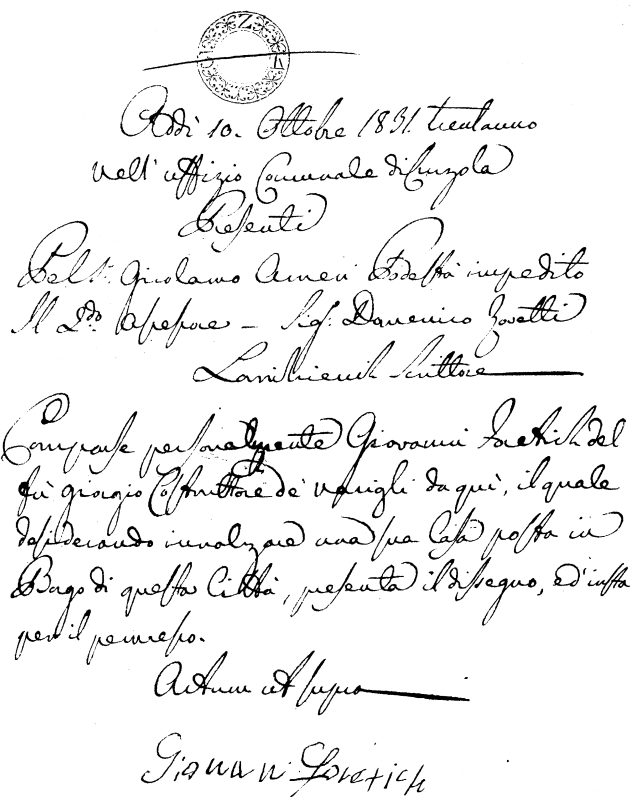 Addì 10. Ottobre 1831. trentauno
nell' uffizio Comunale di Curzola
Presenti
Pel Sr. Girolamo Arneri Podestà impedito
Il 2do. Assessore - Sig: Domenico Zovetti
Scrittore
Comparse personalmente Giovanni Foretich del
fù Giorgio Costruttore de' navigli da quì, il quale
desiderando innalzare una sua Casa posta in
Borgo di questa Città, presenta il dissegno, ed' insta
per il permesso.
Actum ut supra
Giovani Foretich